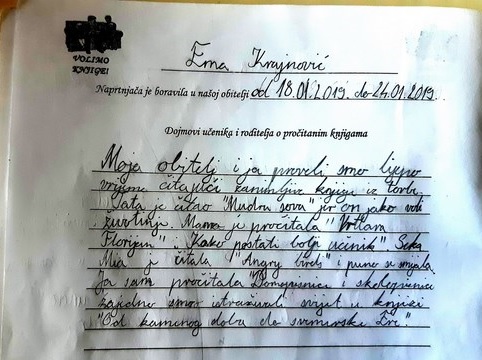 VOLIMO
KNJIGE!
Ema Krajnović
Naprtnjača je boravila u našoj obitelji od 18.01.2019. do 24.01.2019.
Dojmovi učenika i roditelja o pročitanim knjigama
Moja obitelj i ja proveli smo lijepo
vrijeme čitajući zanimljive knjige iz torbe.
Tata je čitao "Mudru sova" jer on jako voli
životinje. Mama je pročitala "Vrtlara
Florijan" i "Kako postati bolji učenik". Seka
Mia je čitala "Angry birds" i puno se smijala.
Ja sam pročitala "Pomoćnice i
zajedno smo istraživali svijet u knjizi
"Od kamenog doba do svemirske Ere".